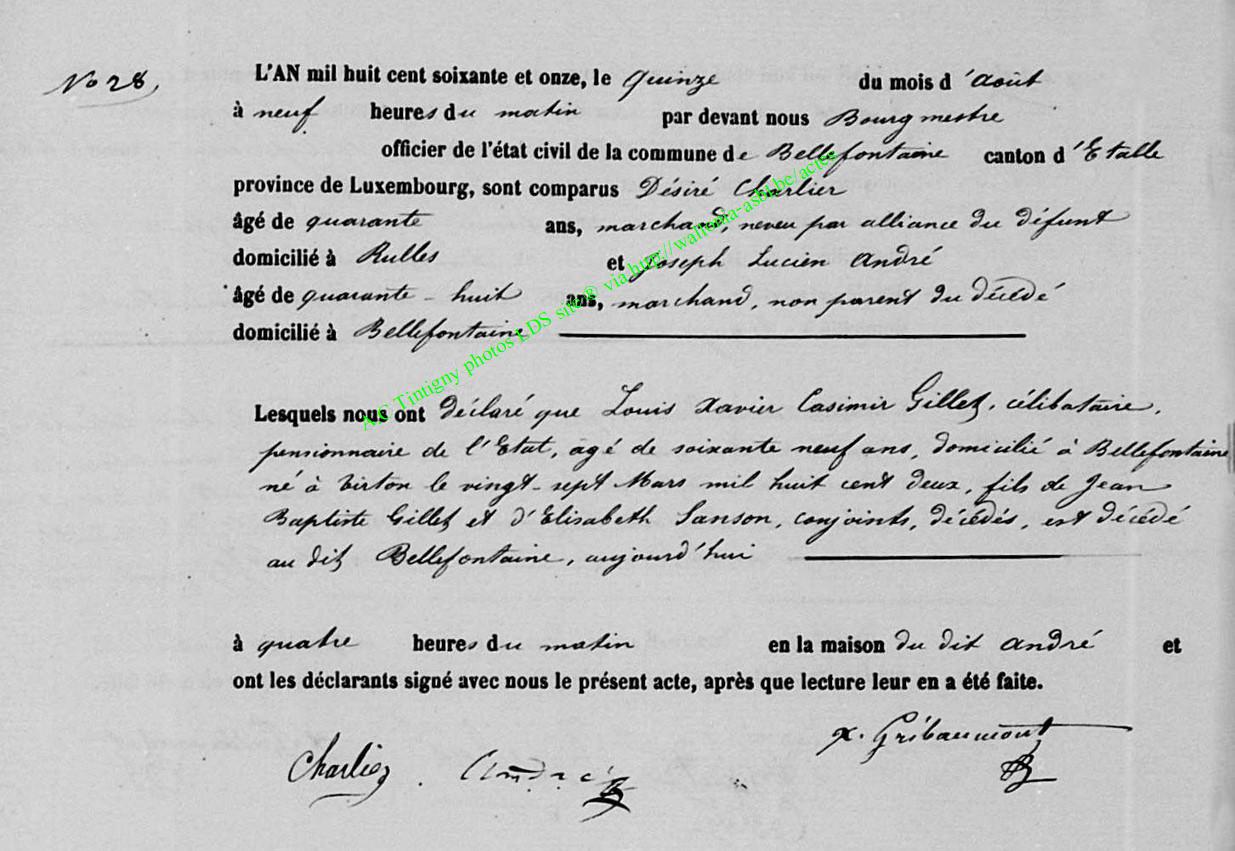 No 28,
L'AN mil huit cent soixante et onze, le quinze du mois d'août
à neuf heures du matin par devant nous Bourgmestre
officier de l'état civil de la commune de Bellefontaine canton d'Etalle
province de Luxembourg, sont comparus Désiré Charlier
âgé de quarante ans, marchand, neveu par alliance du défunt
domicilié à Rulles et Joseph Lucien André
âgé de quarante-huit ans, marchand, non parent du décédé
domicilié à Bellefontaine
Lesquels nous ont déclaré que Louis Xavier Casimir Gillet, célibataire,
pensionnaire de l'Etat, agé de soixante neuf ans, domicilié à Bellefontaine
né à Virton le vingt-sept Mars mil huit cent deux, fils de Jean
Baptiste Gillet et d'Elisabeth Sanson, conjoints, décédés, est décédé
au dit Bellefontaine, aujourd'hui
à quatre heures du matin en la maison du dit André et
ont les déclarants signé avec nous le présent acte, après que lecture leur en a été faite.
x. Gribaumont
Charlier. André
A.C Tintigny photos LDS site® via http://wallonia-asbl.be/actes